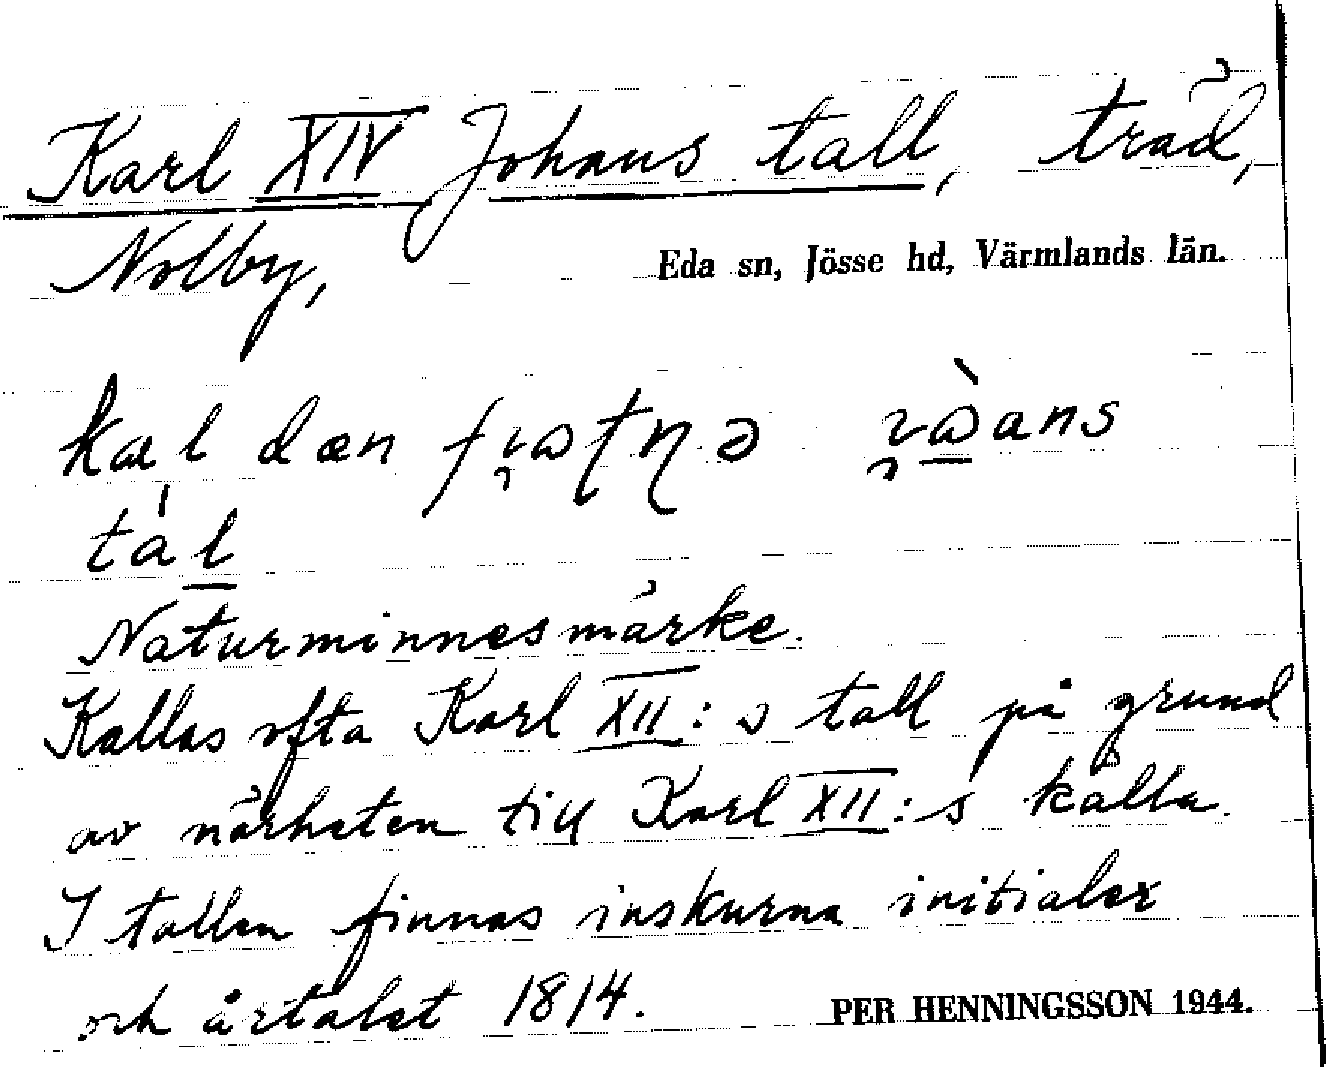 Karl XIV Johans tall, träd,
Nolby,
Eda sn, Jösse hd, Värmlands län.
kæl dæn
tál
Naturminnesmärke.
Kallas ofta Karl XII:s tall på grund
av närheten till Karl XII:s källa.
I tallen finnas inskurna initialer
och årtalet 1814.
PER HENNINGSSON 1944.